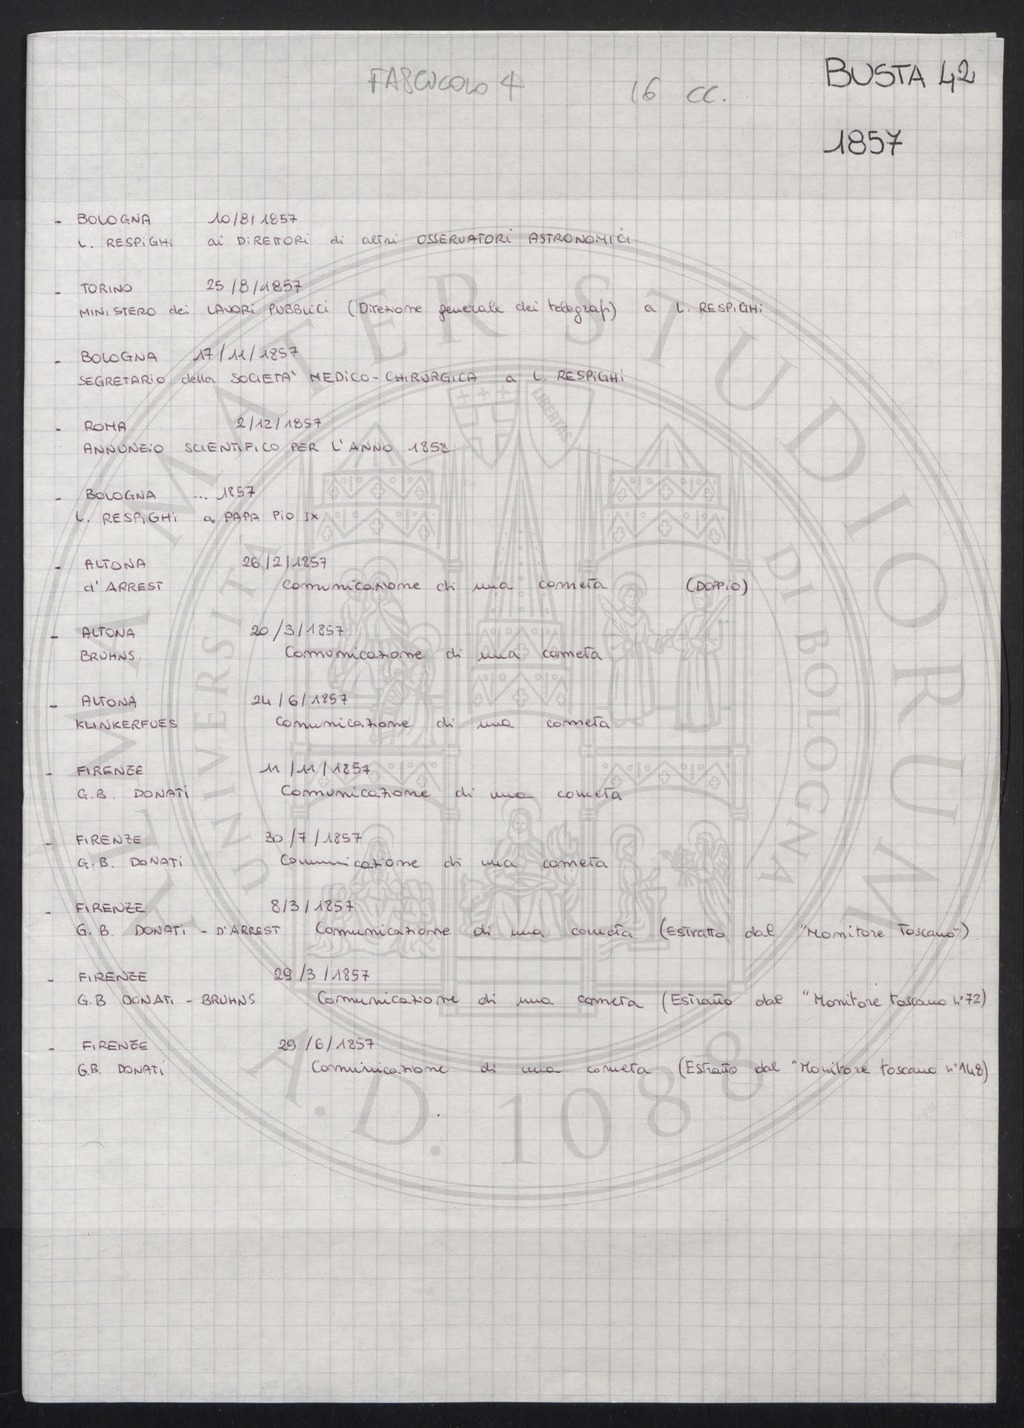 FASCICOLO 4 16 CC. BUSTA 42
1857
- BOLOGNA 10/8/1857
L. RESPIGHI ai DIRETTORI di altri OSSERVATORI ASTRONOMICI
- TORINO 25/8/1857
MINISTERO dei LAVORI PUBBLICI (Direzione generale dei telegrafi) a L. RESPIGHI
- BOLOGNA 17/11/1857
SEGRETARIO della SOCIETA' MEDICO-CHIRURGICA a L. RESPIGHI
- ROMA 2/12/1857
ANNUNZIO SCIENTIFICO PER L'ANNO 1858
- BOLOGNA ... 1857
L. RESPIGHI a PAPA PIO IX
- ALTONA 26/2/1857
d'ARREST Comunicazione di una cometa (DOPPIO)
- ALTONA 20/3/1857
BRUHNS Comunicazione di una cometa
- ALTONA 24/6/1857
KLINKERFUES Comunicazione di una cometa
- FIRENZE 11/11/1857
G.B. DONATI Comunicazione di una cometa
- FIRENZE 30/7/1857
G.B. DONATI Comunicazione di una cometa
- FIRENZE 8/3/1857
G.B. DONATI - D'ARREST Comunicazione di una cometa (Estratto dal "Monitore Toscano")
- FIRENZE 29/3/1857
G.B DONATI - BRUHNS Comunicazione di una cometa (Estratto dal "Monitore toscano n°72)
- FIRENZE 29/6/1857
G.B. DONATI Comunicazione di una cometa (Estratto dal "Monitore toscano n°148)
ALMA MATER STUDIORUM
UNIVERSITÀ DI BOLOGNA
LIBERTAS
A.D. 1088